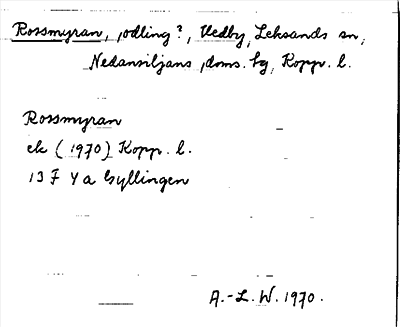 Rossmyran, odling?, Hedby, Leksands sn,
Nedansiljans doms. bg, Kopp. l.
Rossmyran
ek (1970) Kopp. l.
13 F 4 a Gyllingen
A.-L. W. 1970.